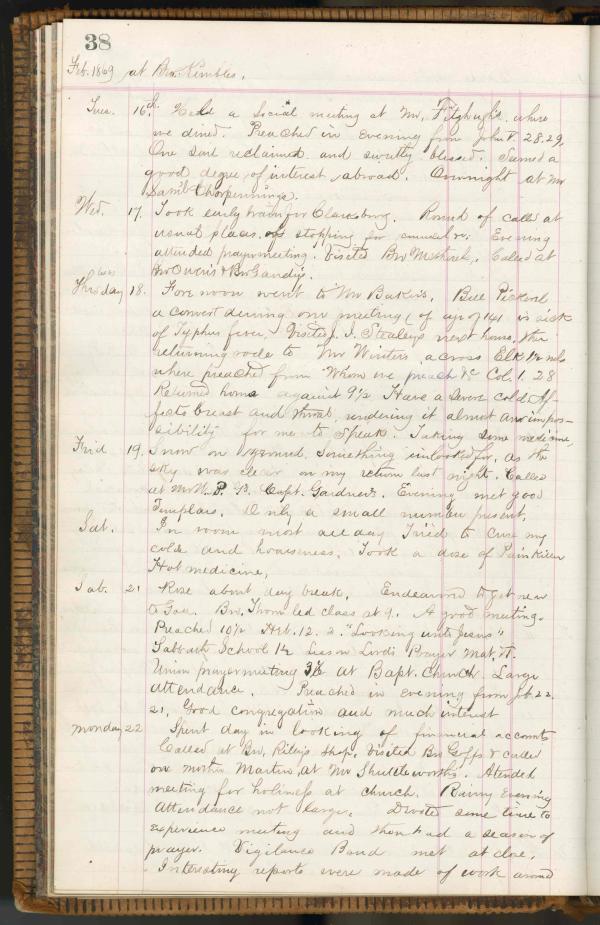 38
Feb. 1869 at Bro. Kimbles.
Tues. 16th. Held a social meeting at Mr. Fitzhugh's where
we dined. Preached in Evening from John V. 28.29.
One soul reclaimed and sweetly blessed. Seemed a
good degree of interest abroad. Overnight at Mr
Saml Thorpennings.
Wed. 17. Took early train for Clarksburg. Round of calls at
usual places. stopping for Evening
attended prayermeeting. Visited Bro Called at
Bro Owens & Bro Gandys.
Thursday 18. Fore noon went to Mr Bakers. Bill Pickerel
a convert during our meeting (of age of 14) is sick
of Typhus fever. Visited J. I. Stealeys next house. then
returning rode to Mr Winters across Elk 1½ mls
where preached from Whom we preach &c Col. 1. 28
Returned home against 9½ Have a severe cold. Af-
fects breast and throat, rendering it almost an impos-
sibility for me to speak. Taking some medicine,
Frid 19. Snow on ground. Something unlooked for, as the
sky was clear on my return last night. Called
at Mr W. P. B. Capt. Gardners. Evening met good
Templars. Only a small number present.
Sat. In room most all day Tried to cure my
cold and hoarseness. Took a dose of Pain Killer
Hot medicine,
Sab. 21 Rose about day break. Endeavored to get near
to God. Bro. Thom led class at 9. A good meeting.
Preached 10½ Heb. 12. 2. "Looking unto Jesus"
Sabbath School 1½ Lesson Lord's Prayer Mat. VI.
Union prayermeeting 3½ at Bapt. Church. Large
attendance. Preached in evening from Job 22.
21. Good congregation and much interest
Monday 22 Spent day in looking of financial accounts
Called at Bro. Riley's shop, visited Bro Goffs & called
on mother Martin at Mr Shuttleworth's. Atended
meeting for holiness at church. Rainy Evening
Attendance not large. Devoted some time to
experience meeting and then had a season of
prayer. Vigilance Band met at close.
Interesting reports were made of work around